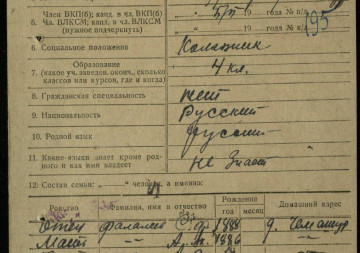 Член ВКП(б); канд. в чл. ВКП(б)
5. Чл. ВЛКСМ; канд. в чл. ВЛКСМ Б/П 19 года № п/б 195
(нужное подчеркнуть) 19 года № к/к
6. Социальное положение Колхозник
Образование
7. (какое уч. заведен. оконч., сколько классов или курсов, где и когда) 4 кл.
8. Гражданская специальность нет
9. Национальность Русский
10. Родной язык русский
11. Какие языки знает кроме родного и как ими владеет Не знает
12. Состав семьи: человек, а именно:
Родство Фамилия, имя и отчество Рождение год месяц Домашний адрес
Отец 1888 д.
Мать 1886